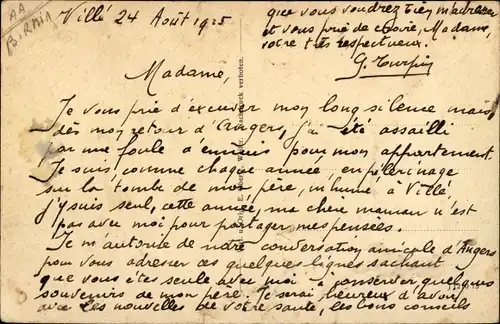 AA
Villé 24 Août 1925
Madame,
Je vous prie d'excuser mon long silence mais
dès mon retour d'Angers, j'ai été assailli
par une foule d'ennuis pour mon appartement.
Je suis, comme chaque année, en pèlerinage
sur la tombe de mon père, inhumé à Villé
j'y suis seul, cette année, ma chère maman n'est
pas avec moi pour partager mes pensées.
Je m'autorise de notre conversation amicale d'Angers
pour vous adresser ces quelques lignes sachant
que vous êtes seule avec moi à conserver quelques
souvenirs de mon père. Je serai heureux d'avoir
avec les nouvelles de votre santé, les bons conseils
que vous voudrez bien m'adresser
et vous prie de croire, Madame,
votre très respectueux.
G. Turpin
Nachdruck verboten.